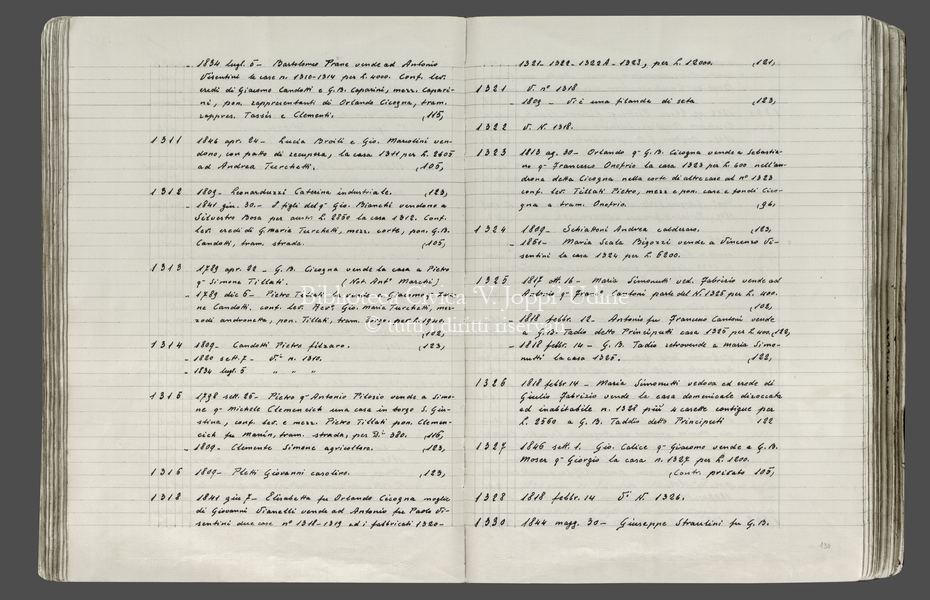 - 1834 lugl. 5 - Bartolomeo Prane vende ad Antonio
Visentini le case n. 1310-1314 per L. 4000. Conf. lev.
eredi di Giacomo Candotti e G.B. Caparini, mezz. Capari-
ni, pon. rappresentanti di Orlando Cicogna, tram.
rappres. Tassis e Clementi. (115,
1311 1846 apr. 24 - Lucia Broili e Gio. Marcolini ven-
dono, con patto di recupera, la casa 1311 per L. 2605
ad Andrea Turchetti. (105,
1312 1809 - Leonarduzzi Caterina industriale. (123,
- 1841 giu. 30 - I figli del qm Gio. Bianchi vendono a
Silvestro Bosa per austr. L. 2250 la casa 1312. Conf.
lev. eredi di G. Maria Turchetti, mezz. corte, pon. G.B.
Candotti, tram. strada. (105,
1313 1789 apr. 22 - G.B. Cicogna vende la casa a Pietro
qm Simone Tillati. (Not. Ant° Marchi)
- 1789 dic 5 - Pietro
ne Candotti, conf. lev. Rev° Gio. Maria Turchetti, mez-
zodì andronetta, pon. Tillati, tram. borgo, per L. 1940.
(102,
1314 1809 - Candotti Pietro filzaro. (123,
- 1820 sett. 7 - Vi n. 1310.
- 1834 lugl. 5 " " "
1315 1798 sett. 26 - Pietro qm Antonio Pilosio vende a Simo-
ne qm Michele Clemencich una casa in borgo S. Giu-
stina, conf. lev. e mezz. Pietro Tillati pon. Clemen-
cich fu Manin, tram. strada, per Di 380. (116,
- 1809 - Clemente Simone agricoltore. (123,
1316 1809 - Pletti Giovanni casolino. (123,
1318 1841 giu 7 - Elisabetta fu Orlando Cicogna moglie
di Giovanni Vianelli vende ad Antonio fu Paolo Vi-
sentini due case n° 1318-1319 ed i fabbricati 1320-
1321- 1322 - 1322A - 1323, per L. 12000. (121,
1321 V. n° 1318
- 1809 - Vi è una filanda di seta. (123,
1322 V. N. 1318.
1323 1813 ag. 30 - Orlando qm G.B. Cicogna vende a Sebastia-
no qm Francesco Onofrio la casa 1323 per L. 600 nell'an-
drona detta Cicogna nella corte di altre case al n° 1323
conf. lev. Tillati Pietro, mezz e pon. case e fondi Cico-
gna a tram. Onofrio. (96,
1324 1809 - Schiattoni Andrea calderaro. (123,
- 1851 - Maria Scala Bigozzi vende a Vincenzo Vi-
sentini la casa 1324 per L. 5200.
1325 1817 ott. 16 - Maria Simonutti ved. Fabrizio vende ad
Antonio qm Franc° Cantoni parte del N. 1325 per L. 400.
(102,
- 1818 febbr. 12 - Antonio fu Francesco Cantoni vende
a G.B. Tadio detto Principuti casa 1325 per L. 400. (122,
- 1818 febbr. 14 - G.B. Tadio retrovende a Maria Simo-
nutti la casa 1325. (122,
1326 1818 febbr 14 - Maria Simonutti vedova ed erede di
Giulio Fabrizio vende la casa domenicale diroccata
ed inabitabile n. 1328 più 4 casette contigue per
L. 2560 a G.B. Taddio detto Principuti 122
1327 1846 sett. 1. Gio. Calice qm Giacomo vende a G.B.
Moser qm Giorgio la casa n. 1327 per L. 1200.
(Contr. privato 105,
1328 1818 febbr. 14 Vi N. 1326.
1330 1844 magg. 30 - Giuseppe Straulini fu G.B.
130
Biblioteca Civica 'V. Joppi' Udine
© tutti i diritti riservati